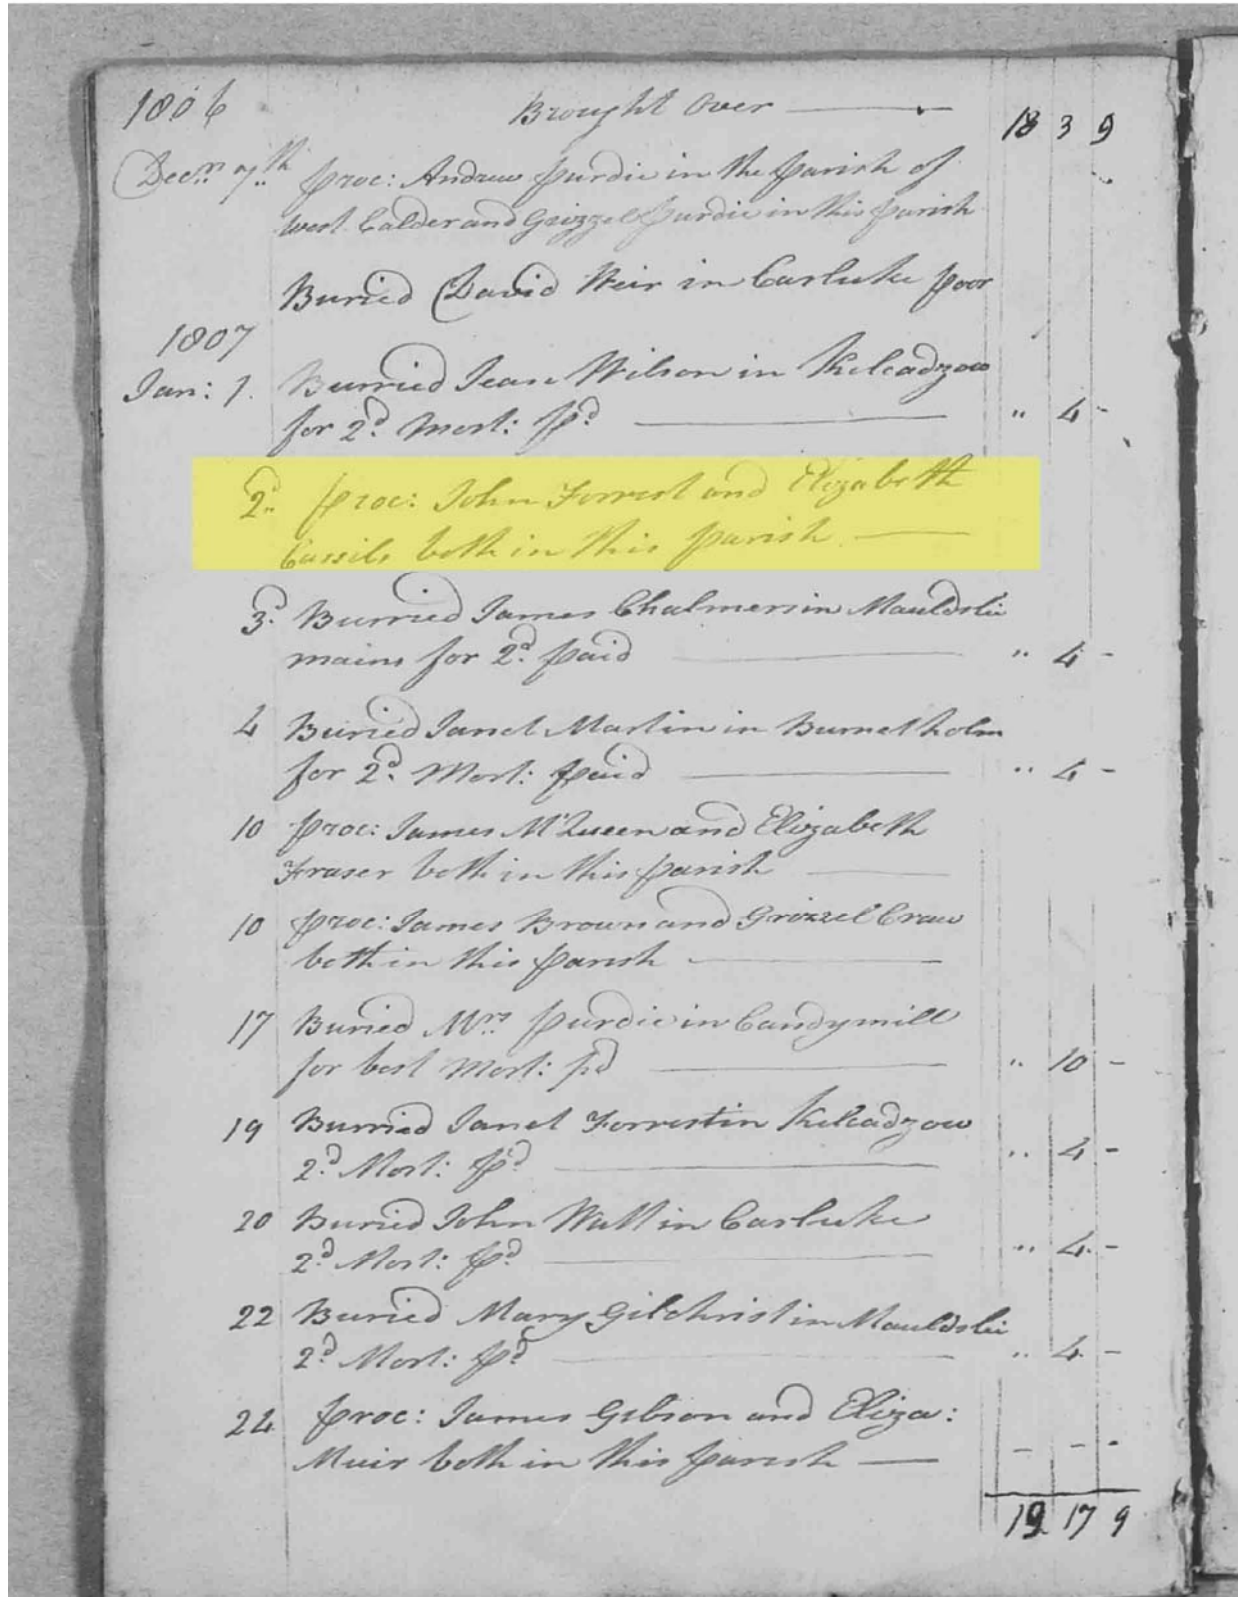 1806 Brought Over 18 3 9
Decr. 7th proc: Andrew Purdie in the Parish of
West Calder and Grizzel Purdie in this parish
Buried David Weir in Carluke poor
1807
Jan: 1. Burried Jean Wilson in Kilcadzow
for 2d. Mort: Pd. " 4 -
2d. proc: John Forrest and Elizabeth
Cassils both in this parish
3d. Burried James Chalmers in Mauldslie
mains for 2d. paid " 4 -
4 Buried Janet Martin in Burnetholm
for 2d. Mort: paid " 4 -
10 proc: James McQueen and Elizabeth
Fraser both in this parish
10 proc: James Brown and Grizzel Craw
both in this parish
17 Buried Mrs. Purdie in Candymill
for best Mort: pd " 10 -
19 Burried Janet Forrest in Kilcadzow
2d. Mort: Pd " 4 -
20 Buried John Watt in Carluke
2d. Mort: Pd " 4 -
22 Buried Mary Gilchrist in Mauldslie
2d. Mort: Pd " 4 -
24 proc: James Gibson and Eliza:
Muir both in this parish - - -
19 17 9